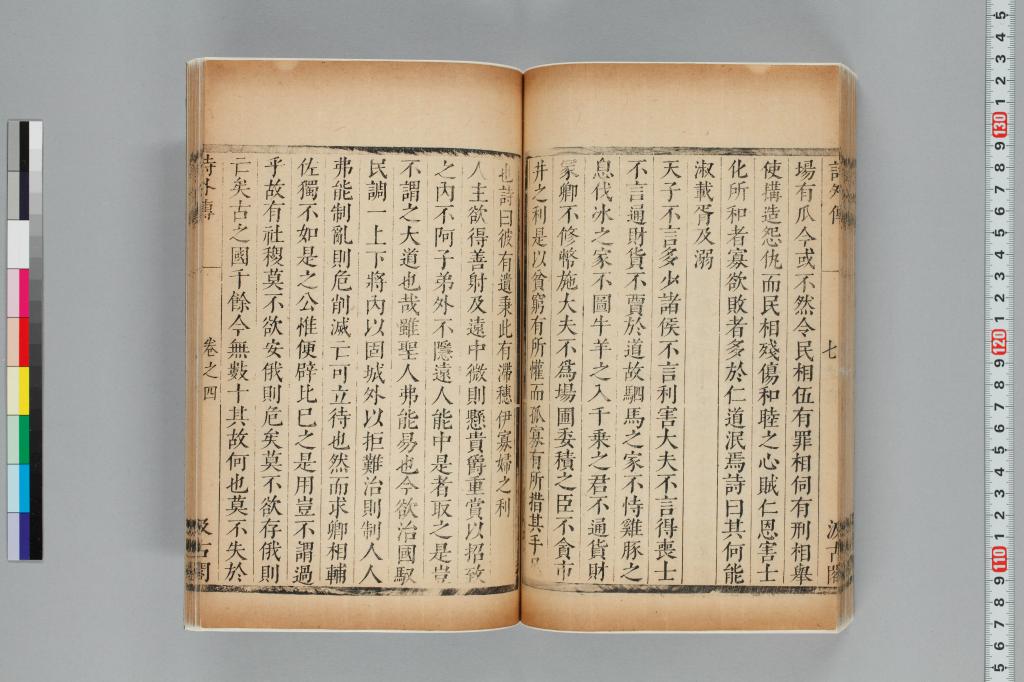 詩外傳
七
汲古閣
場有瓜今或不然令民相伍有罪相伺有刑相舉
使構造怨仇而民相殘傷和睦之心賊仁恩害士
化所和者寡欲敗者多於仁道泯焉詩曰其何能
淑載胥及溺
天子不言多少諸侯不言利害大夫不言得喪士
不言通財貨不賈於道故駟馬之家不恃雞豚之
息伐冰之家不圖牛羊之入千乘之君不通貨財
冢卿不修幣施大夫不為場圃委積之臣不貪市
井之利是以貧窮有所懽而孤寡有所措其手足
也詩曰彼有遺秉此有滯穗伊寡婦之利
人主欲得善射及遠中微則懸貴爵重賞以招致
之內不阿子弟外不隱遠人能中是者取之是豈
不謂之大道也哉雖聖人弗能易也今欲治國馭
民調一上下將內以固城外以拒難治則制人人
弗能制亂則危削滅亡可立待也然而求卿相輔
佐獨不如是之公惟便辟比已之是用豈不謂過
乎故有社稷莫不欲安俄則危矣莫不欲存俄則
亡矣古之國千餘今無數十其故何也莫不失於
詩外傳
卷之四
汲古閣